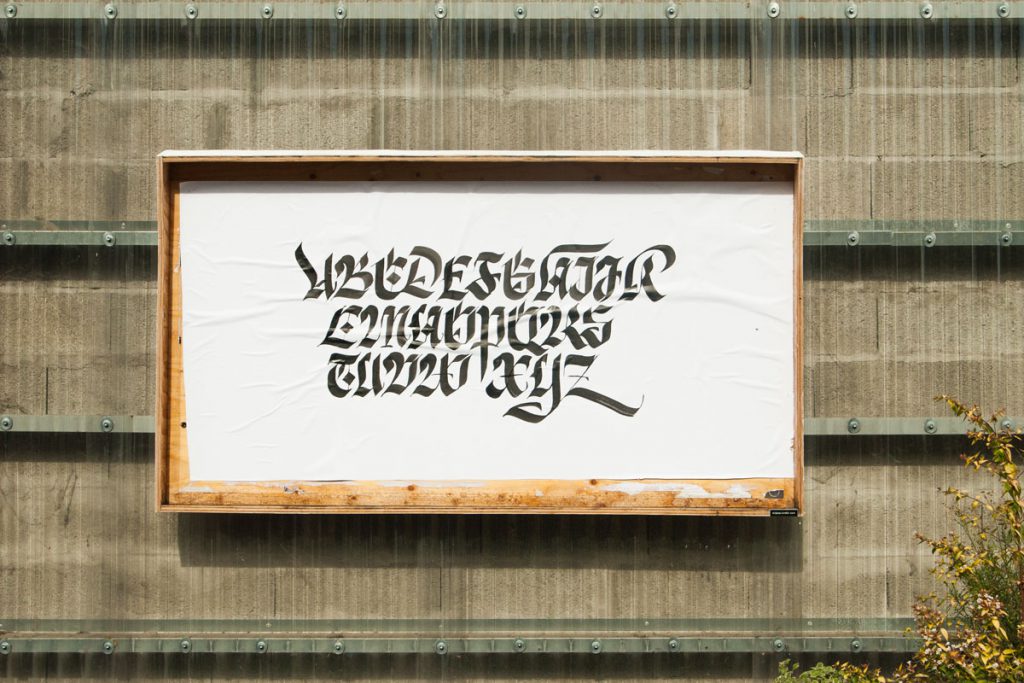 ABCDEFGHIJK
LMNOPQRS
TUVWXYZ